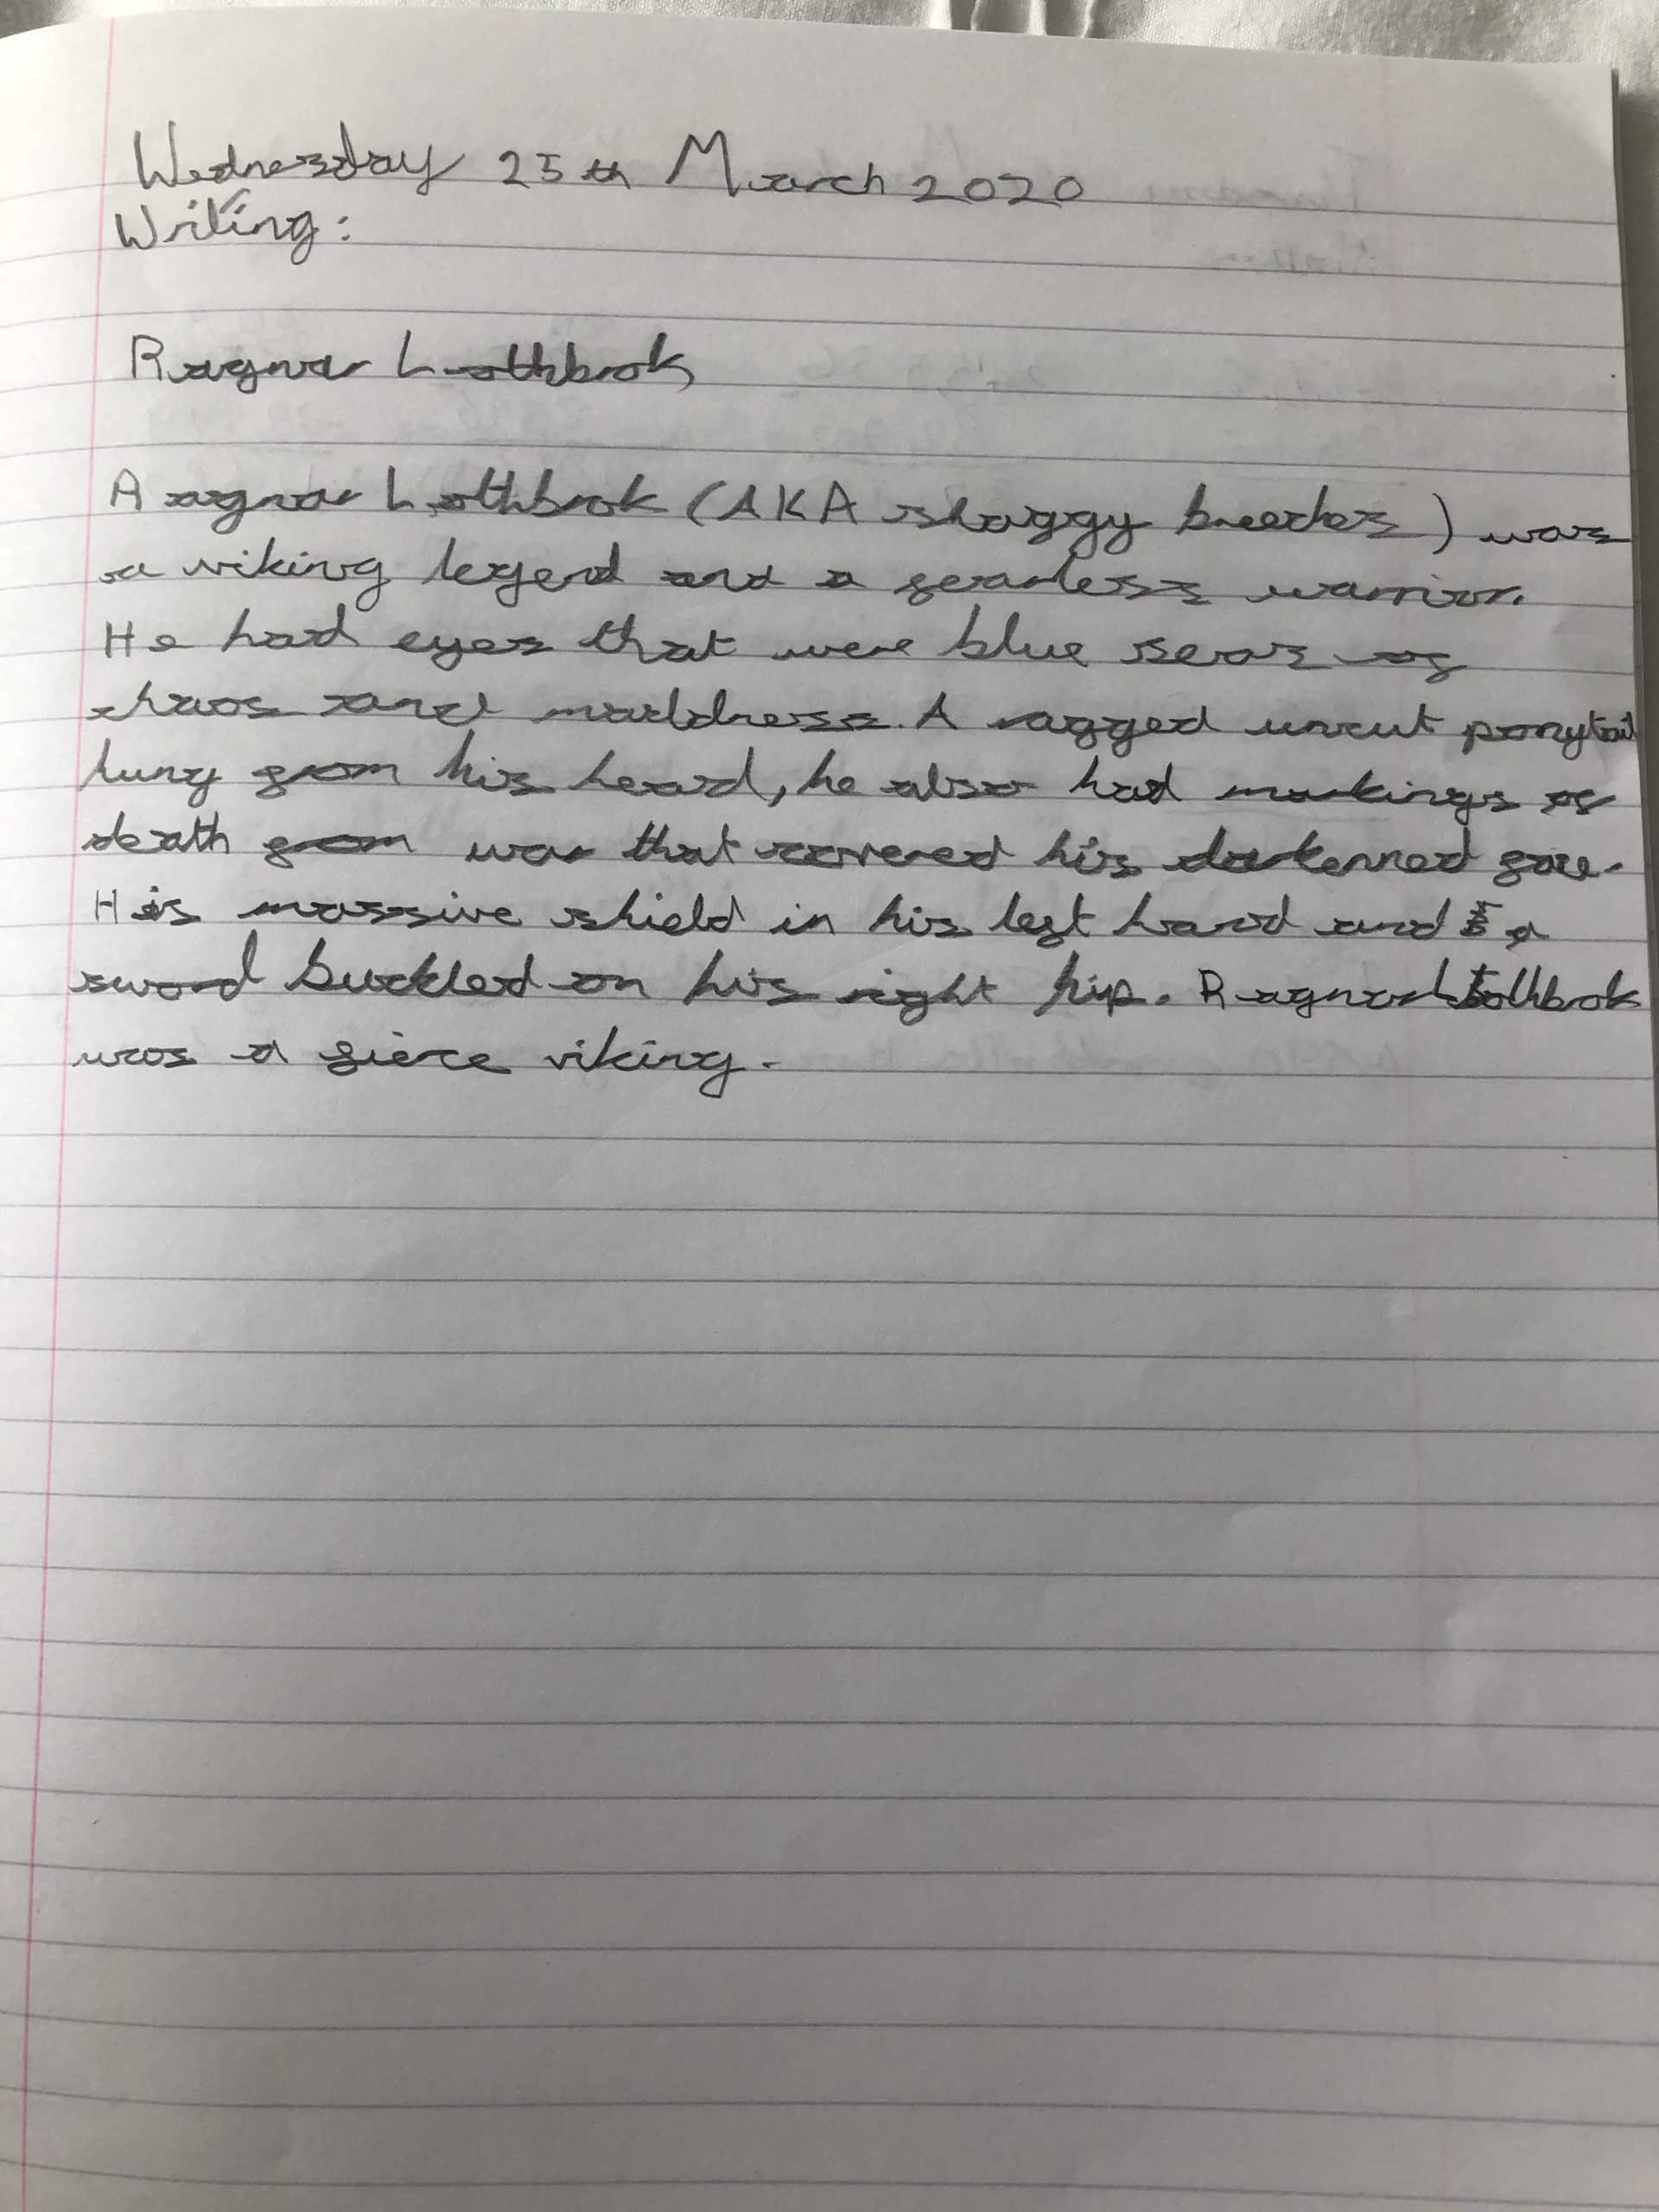 Wednesday 25th March 2020
Writing:
Ragnar Lothbrok
Ragnar Lothbrok (AKA shaggy breeches) was
a viking legend and a fearless warrior.
He had eyes that were blue seas of
chaos and maddness. A ragged uncut ponytail
hung from his head, he also had markings of
death from war that covered his darkenned face.
His massive shield in his left hand and a
sword buckled on his right hip. Ragnar Lothbrok
was a fierce viking.